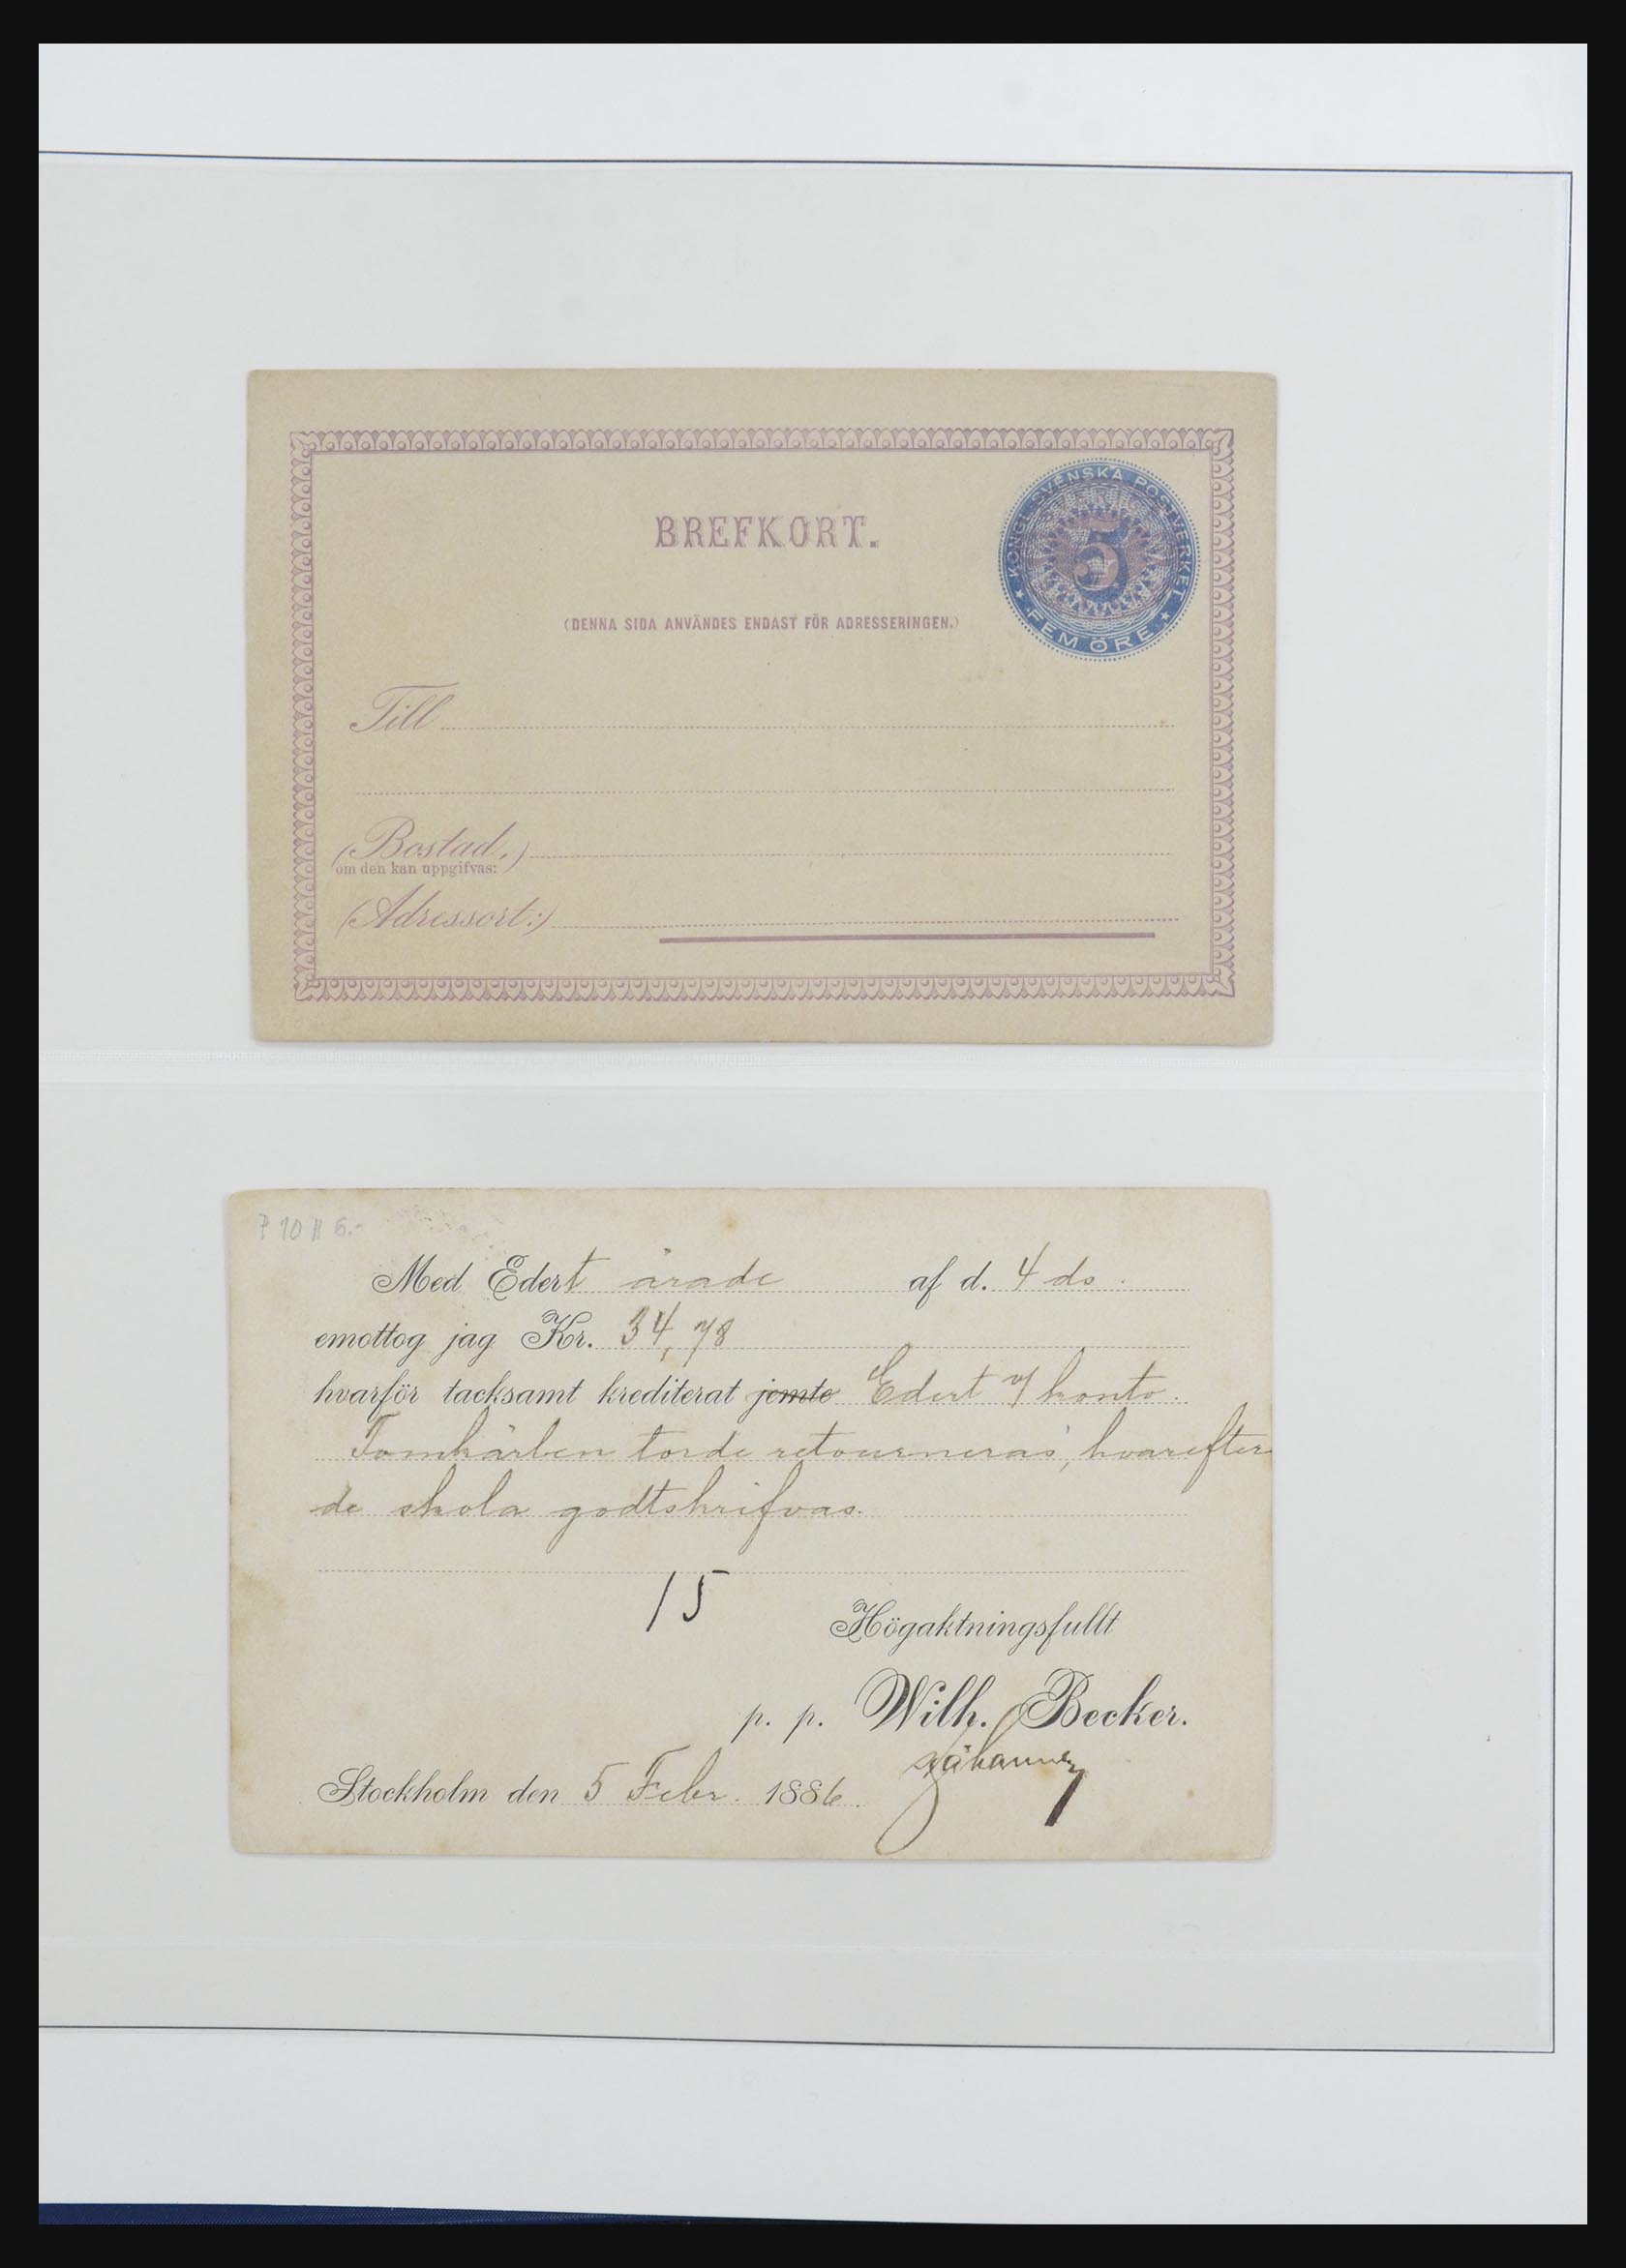 BREFKORT.
KONGL. SVENSKA POSTVERKET
5
FEM ÖRE
(DENNA SIDA ANVÄNDES ENDAST FÖR ADRESSERINGEN.)
Till
(Bostad,)
om den kan uppgifvas:
(Adressort:)
P 10 II 6.-
Med Edert ärade af d. 4 ds.
emottog jag Kr. 34,78
hvarför tacksamt krediterat jemte Edert v/ konto.
Tomkärlen torde retourneras, hvarefter
de skola godtskrifvas.
15
Högaktningsfullt
p. p. Wilh. Becker.
Stockholm den 5 Febr. 1886.